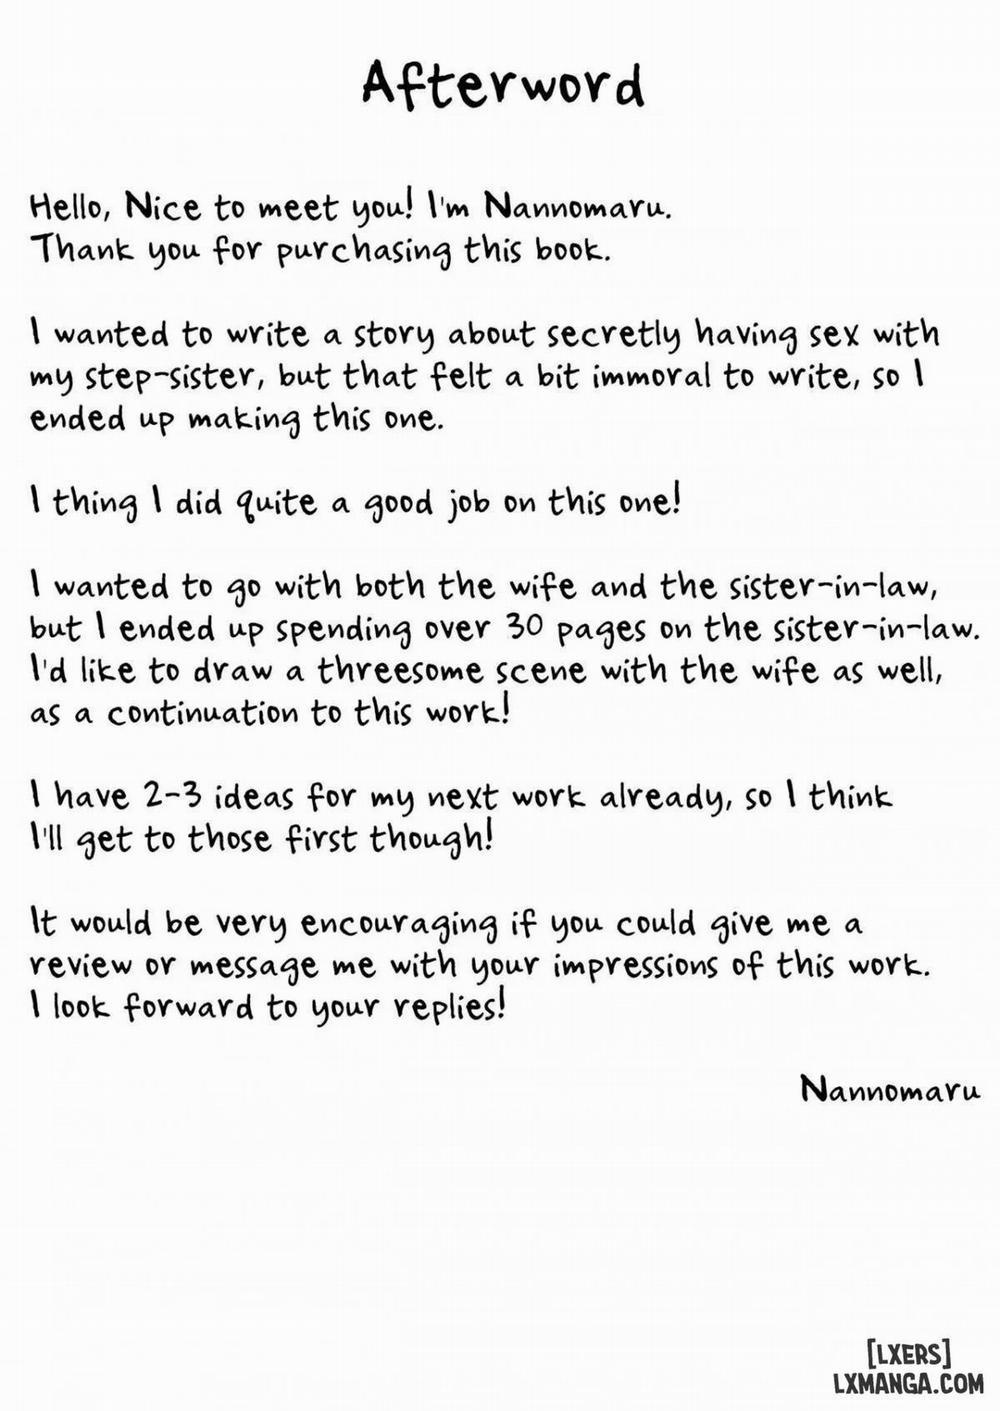 Afterword
Hello, Nice to meet you! I'm Nannomaru.
Thank you for purchasing this book.
I wanted to write a story about secretly having sex with
my step-sister, but that felt a bit immoral to write, so I
ended up making this one.
I thing I did quite a good job on this one!
I wanted to go with both the wife and the sister-in-law,
but I ended up spending over 30 pages on the sister-in-law.
I'd like to draw a threesome scene with the wife as well,
as a continuation to this work!
I have 2-3 ideas for my next work already, so I think
I'll get to those first though!
It would be very encouraging if you could give me a
review or message me with your impressions of this work.
I look forward to your replies!
Nannomaru
[LXERS]
LXMANGA.COM